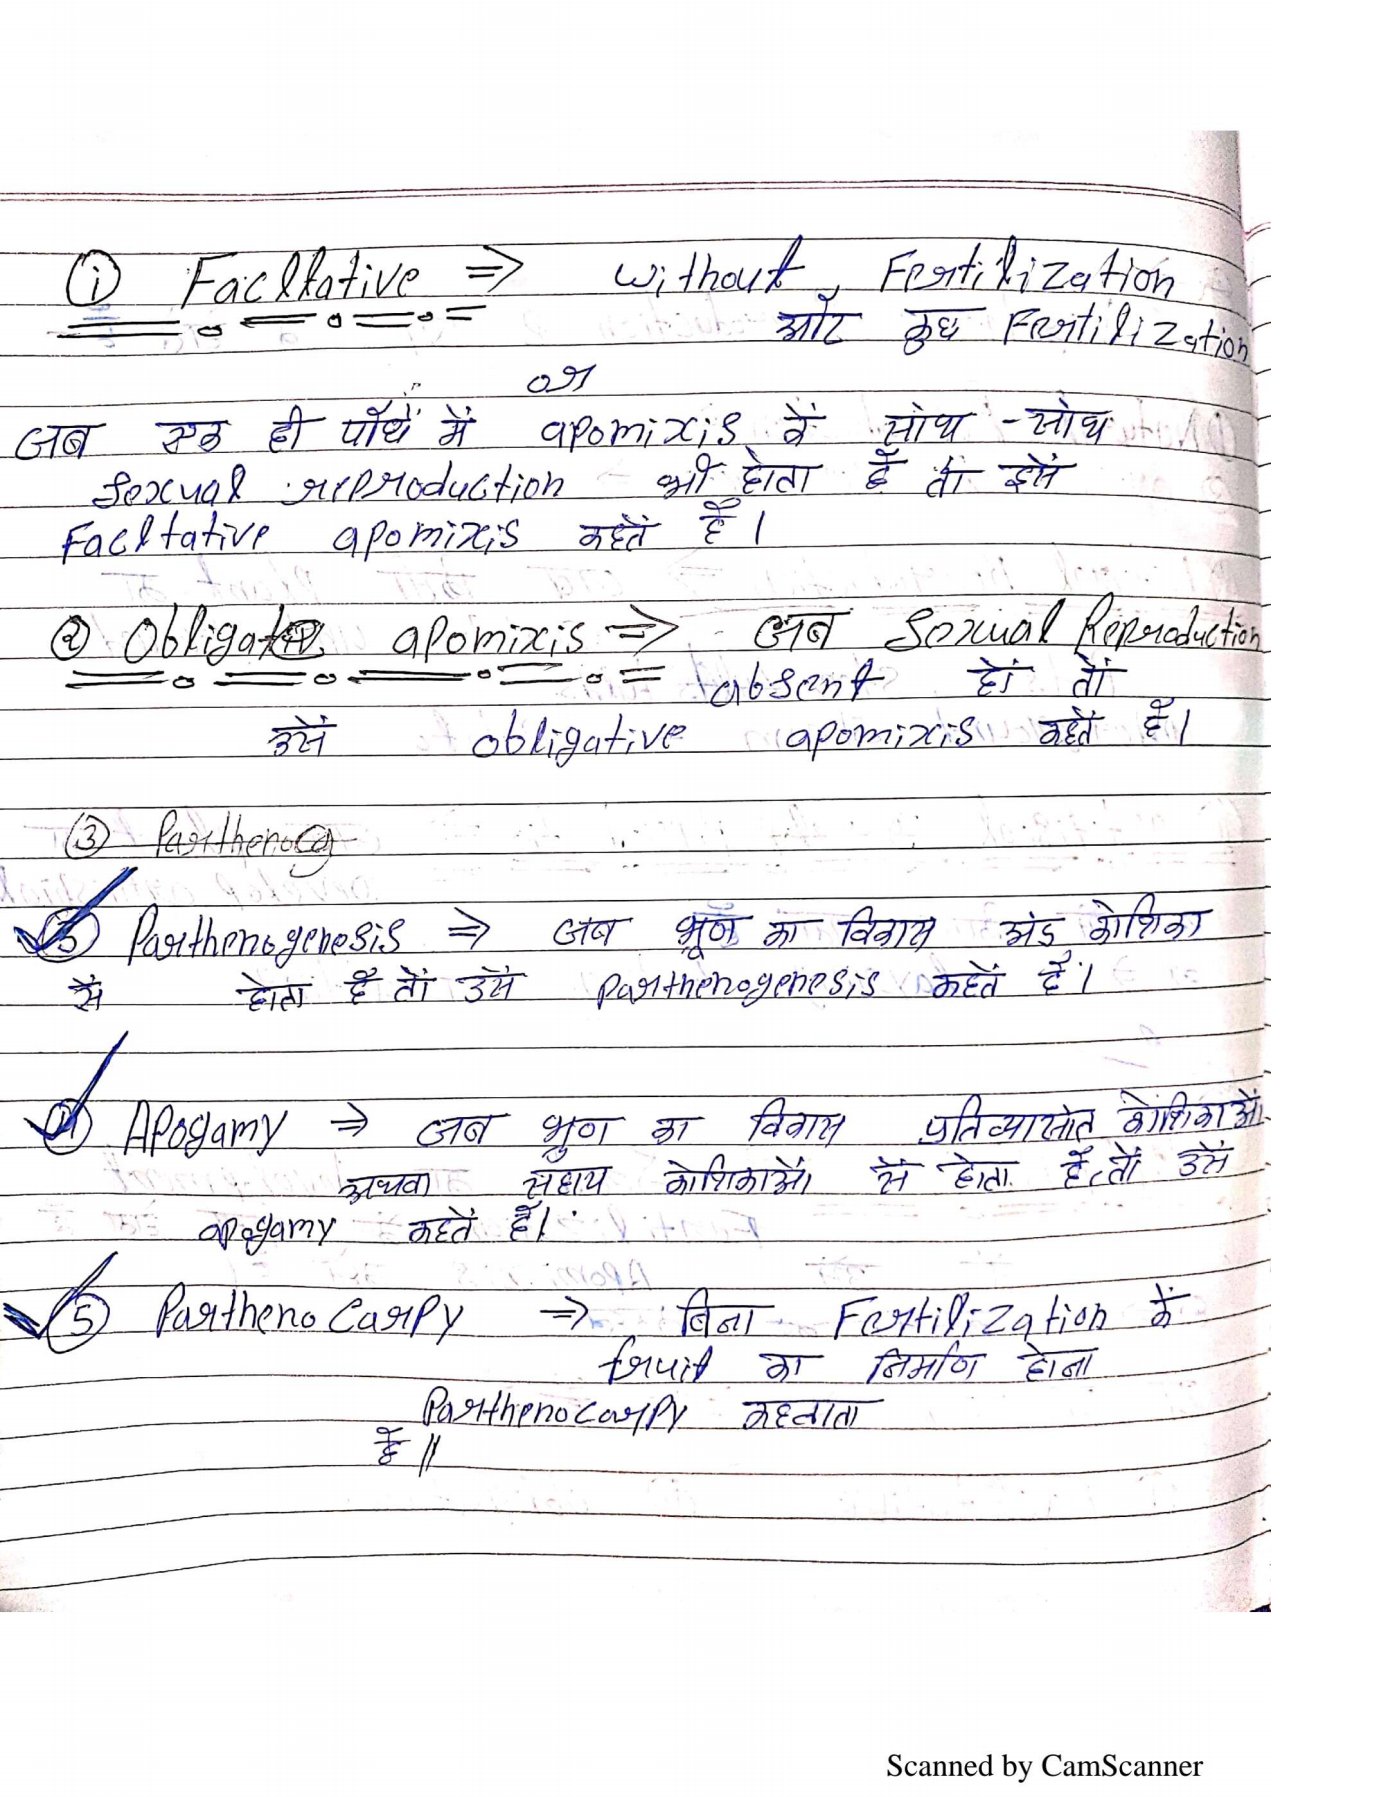 ① Facltative ⇒ without, Fertilization
और कुछ Fertilization
or
जब एक ही पौधें में apomixis के साथ - साथ
Sexual reproduction भी होता है तो इसे
Facltative apomixis कहतें है।
② Obligate apomixis ⇒ जब Sexual Reproduction
absent हो तो
उसे obligative apomixis कहतें है।
③ Parthenog
③ Parthenogenesis ⇒ जब भ्रूण का विकास अंड कोशिका
से होता है तो उसे parthenogenesis कहतें है।
④ Apogamy ⇒ जब भ्रूण का विकास कोशिकाओं
अथवा सहाय कोशिकाओं से होता है, तो उसे
apogamy कहतें है।
⑤ Partheno Carpy ⇒ बिना Fertilization के
fruit का निर्माण होना
Parthenocarpy कहलाता
है॥
Scanned by CamScanner